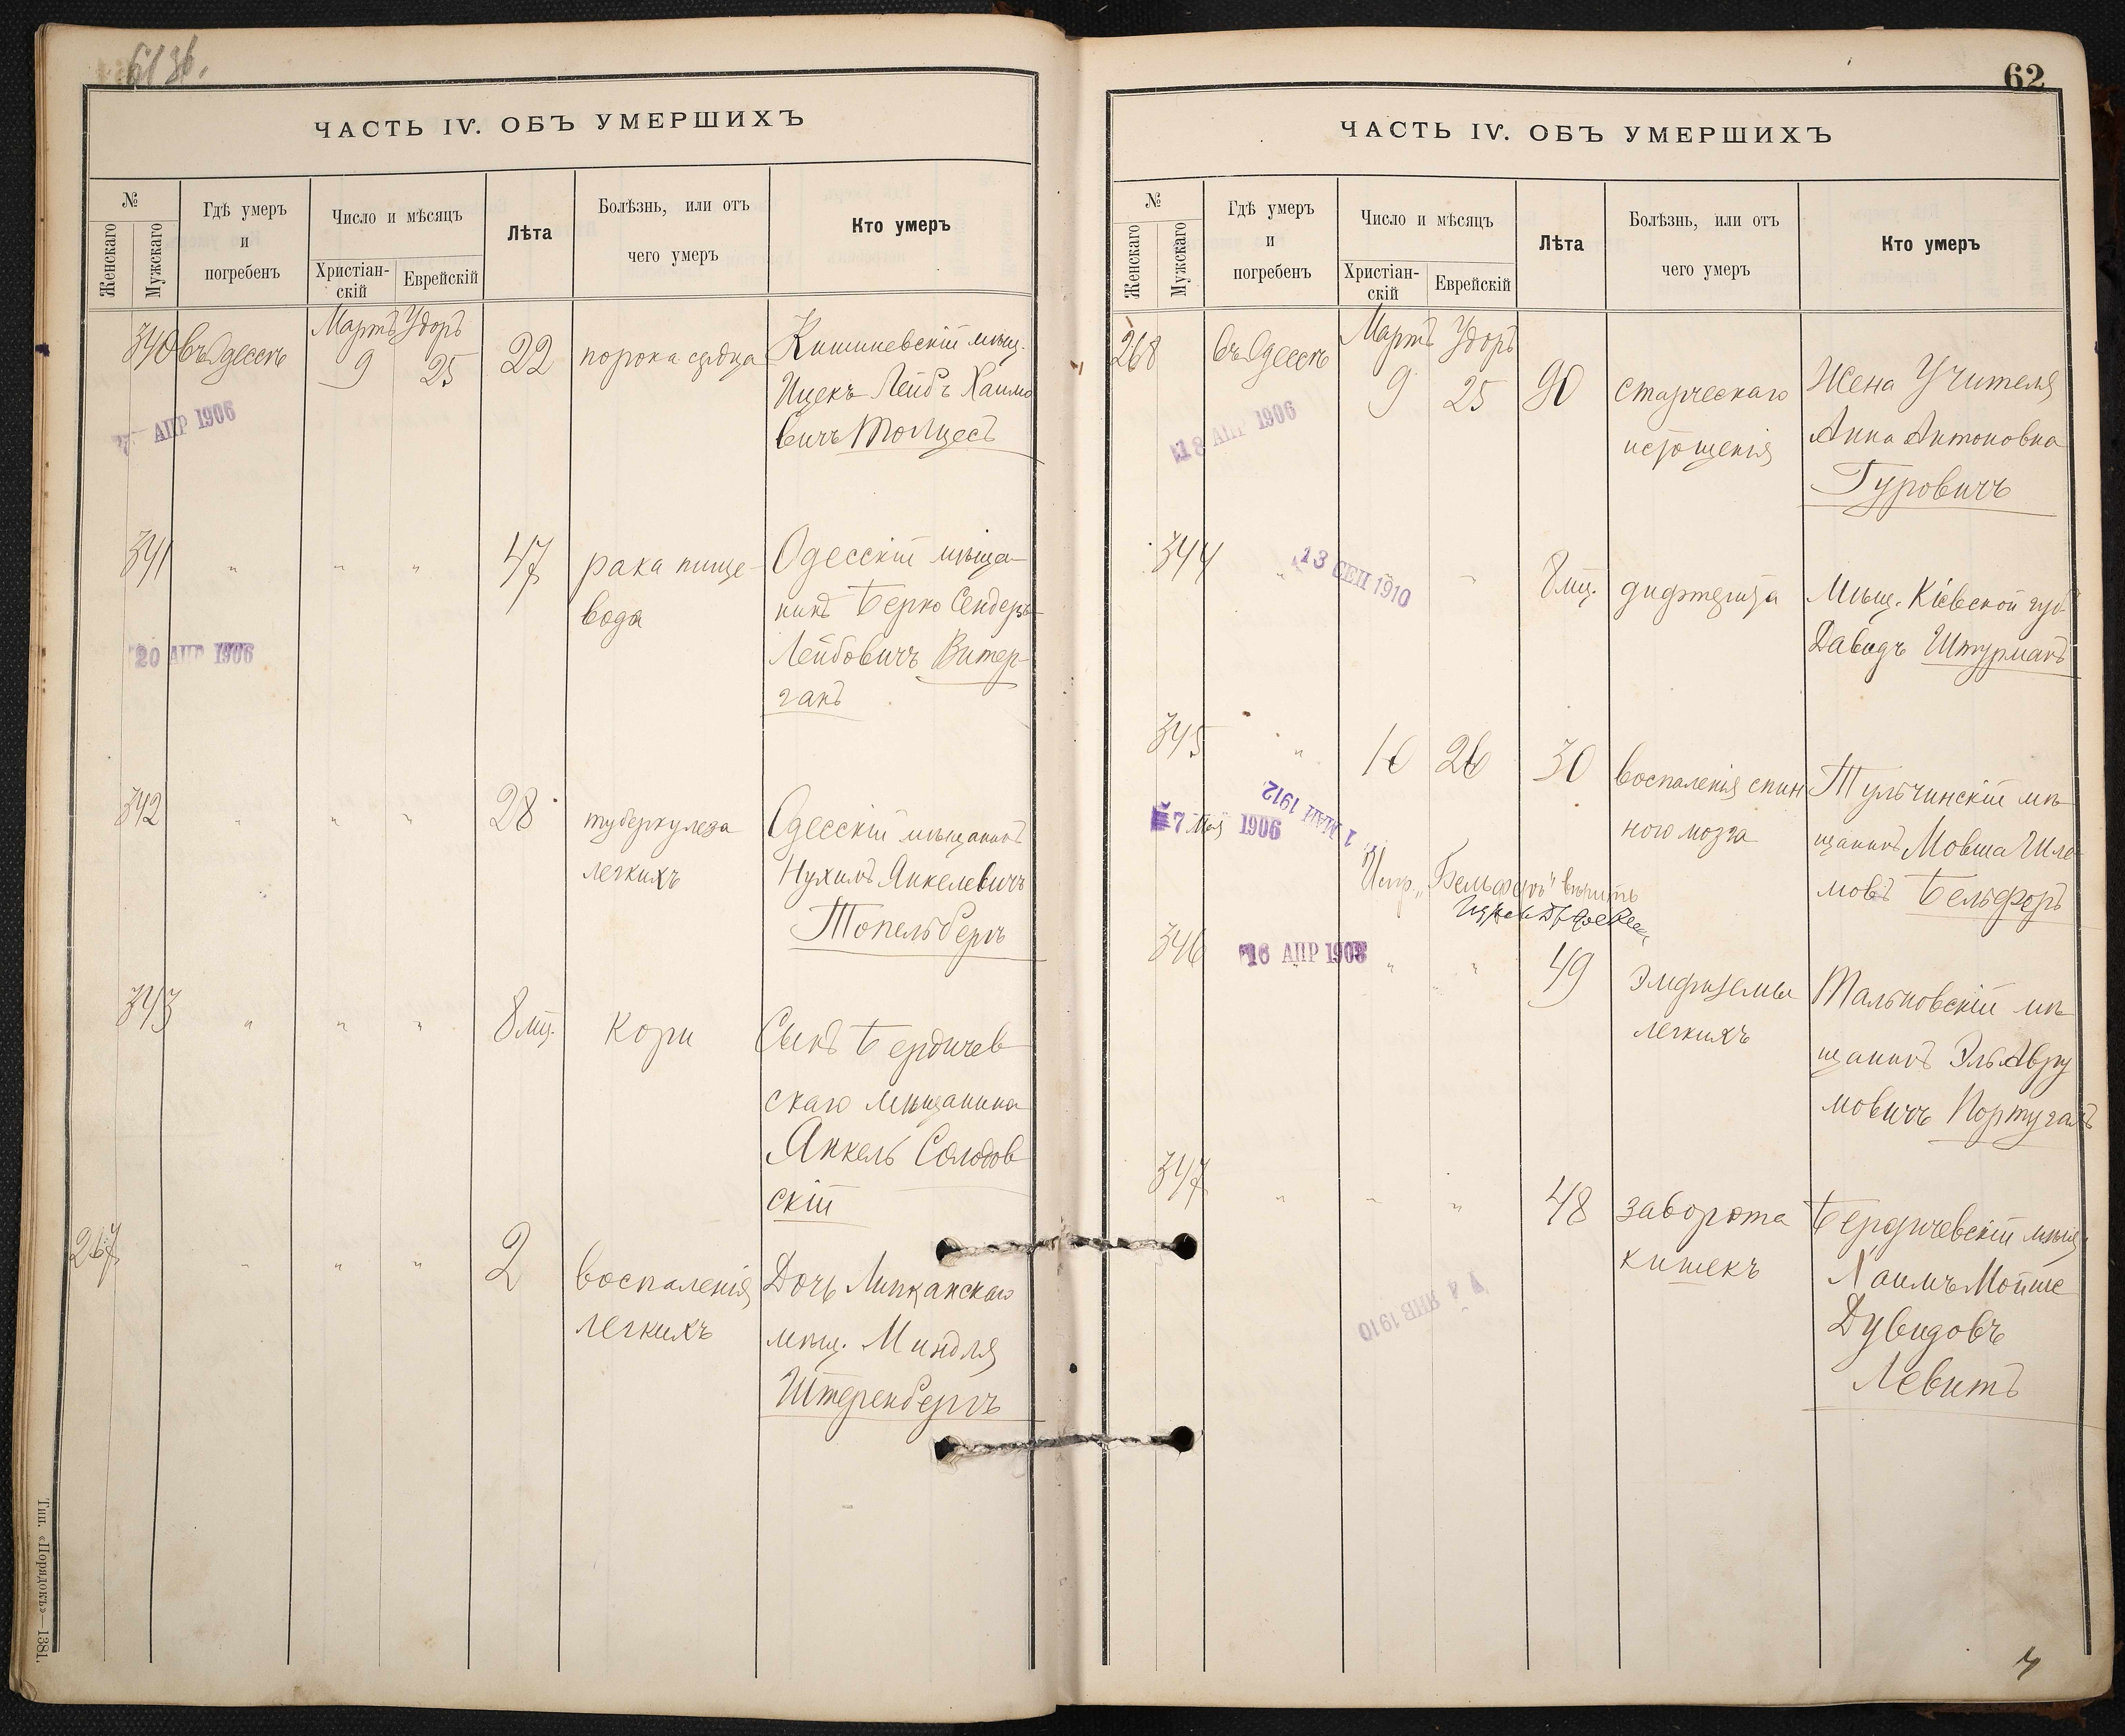 ЧАСТЬ IV. ОБЪ УМЕРШИХЪ
№
Женскаго
Мужскаго
Гдѣ умеръ
и
погребенъ
Число и мѣсяцъ
Христіан-
скій
Еврейскій
Лѣта
Болѣзнь, или отъ
чего умеръ
Кто умеръ
340 въ Одессѣ
Мартъ Удоръ
9 25
22
порока сердца
Кишиневскій мѣщ.
Ицекъ Лейбъ Хаимо
вичъ
АПР 1906
341 " " "
47
рака пище-
вода
Одесскій мѣща-
нинъ Берко Сендеръ
Лейбовичъ Витер-
ганъ
20 АПР 1906
342 " " "
28
туберкулеза
легкихъ
Одесскій мѣщанинъ
Нухимъ Янкелевичъ
Топельбергъ
343 " " "
8 мц.
кори
Сынъ Бердичев
скаго мѣщанина
Янкель Солодов
скій
267 " " "
2
воспаленія
легкихъ
Дочь Липканскаго
мѣщ. Миндля
Штеренбергъ
Тип. «Порядокъ»—1381.
62
ЧАСТЬ IV. ОБЪ УМЕРШИХЪ
№
Женскаго
Мужскаго
Гдѣ умеръ
и
погребенъ
Число и мѣсяцъ
Христіан-
скій
Еврейскій
Лѣта
Болѣзнь, или отъ
чего умеръ
Кто умеръ
268 въ Одессѣ
Мартъ Удоръ
9 25
90
старческаго
истощенія
Жена Учителя
Анна Антоновна
Гуровичъ
18 АПР 1906
344 " "
8 мц.
дифтерита
Мѣщ. Кіевской губ
Давидъ Штурманъ
13 СЕП 1910
345 "
10 26
30
воспаленія спин
ного мозга
Тульчинскій мѣ
щанинъ Мовша Шле
мовъ Бельферъ
7 Мая 1906
1 МАЙ 1912
Испр. "Бельферъ" вѣрить
346 " "
49
эмфиземы
легкихъ
Тальновскій мѣ
щанинъ Эль Авру
мовичъ Португалъ
16 АПР 1908
347 " " "
48
заворота
кишекъ
Бердичевскій мѣщ.
Хаимъ Мойше
Дувидовъ
Левитъ
ЯНВ 1910